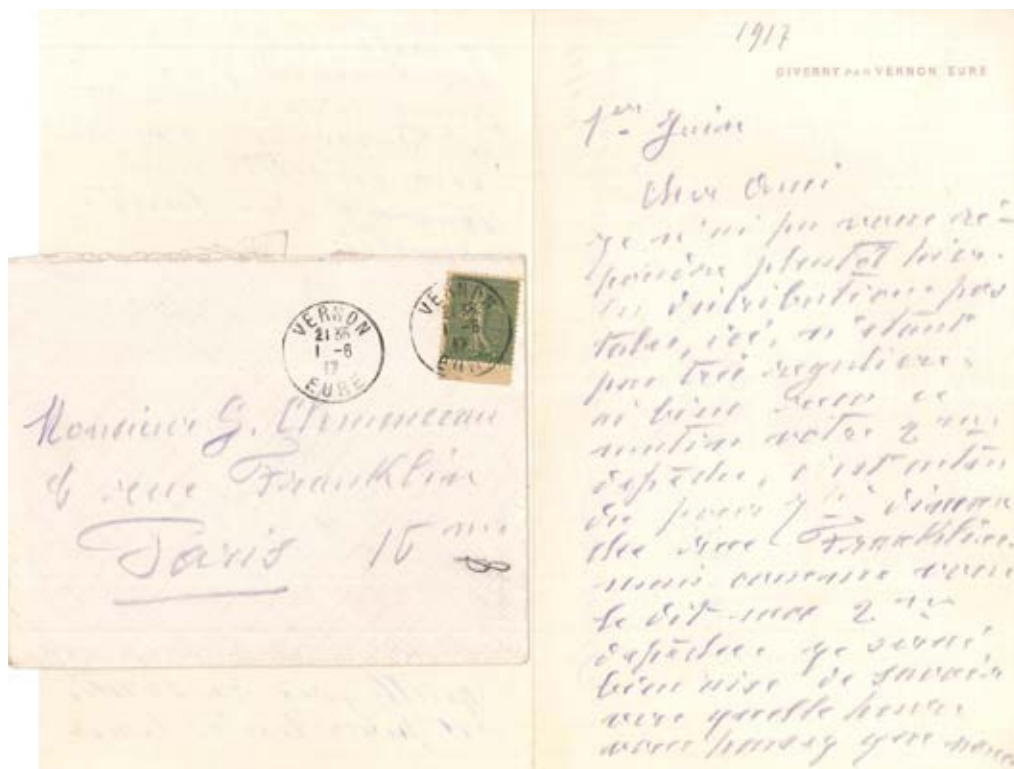 VERNON
21 35
1 -6
17
EURE
VERNON
1 -6
17
EURE
Monsieur G. Clemenceau
8 rue Franklin
Paris 16 me
1917
GIVERNY PAR VERNON EURE
1er Juin
Cher Ami
je n'ai pu vous ré-
pondre plutôt hier.
la distribution pos
tale, ici, n'étant
pas très régulière.
ai bien reçu ce
matin votre 2 me
dépêche, c'est enten
du pour 7 h diman
che rue Franklin
mais comme vous
le dit ma 2 me
dépêche je serai
bien aise de savoir
vers quelle heure
vous pensez que nous